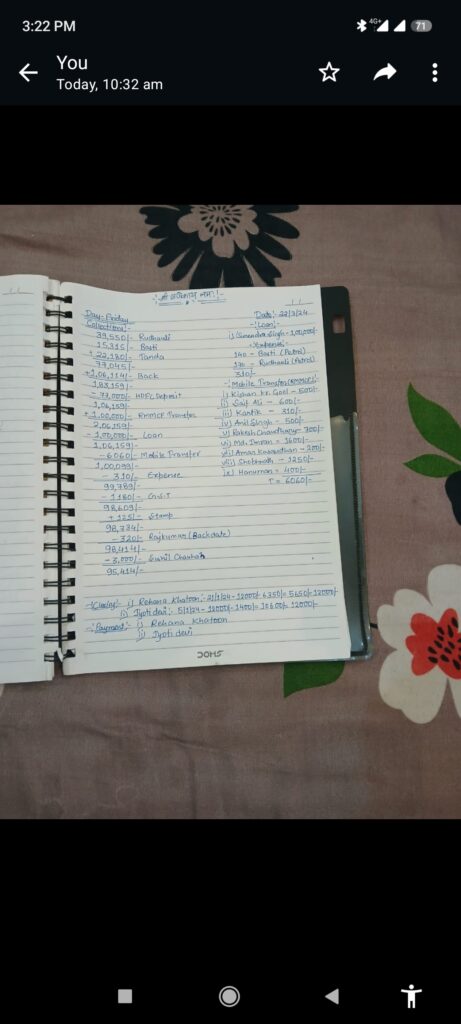 3:22 PM
4G+
71
You
Today, 10:32 am
Day:- Friday
Date:- 22/3/24
Collection:-
39,550/- Rudhauli
15,315/- Basti
+ 22,180/- Tanda
77,045/-
+1,06,114/- Back
1,83,159/-
- 77,000/- HDFC Deposit
1,06,159/-
+ 1,00,000/- RNMCF Transfer
2,06,159/-
- 1,00,000/- Loan
1,06,159/-
- 6060/- Mobile Transfer
1,00,099/-
- 310/- Expense
99,789/-
- 1180/- G.S.T
98,609/-
+ 125/- Stamp
98,734/-
- 320/- Rajkumar (Backdate)
98,414/-
- 3,000/- Sunil Chauhan
95,414/-
-:Loan:-
i) Surendra Singh - 1,00,000/-
-:Expense:-
140 - Basti (Petrol)
170 - Rudhauli (Petrol)
310/-
-: Mobile Transfer (RNMCF):-
i) Kishan Kr. Goel - 500/-
ii) Saif Ali - 600/-
iii) Kartik - 310/-
iv) Anil Singh - 500/-
v) Rakesh Chaudhary - 700/-
vi) Md. Imran = 1600/-
vii) Aman Kasaudhan - 200/-
viii) Shobhnath - 1250/-
ix) Hanuman = 400/-
T = 6060/-
-:Closing:- i) Rehana Khatoon:- 31/1/24 - 12000/- 6350/= 5650/- 12000/-
ii) Jyoti devi:- 5/1/24 - 12000/- 1400/= 10600/- 12000/-
-:Payment:- i) Rehana Khatoon
ii) Jyoti devi
DOMS